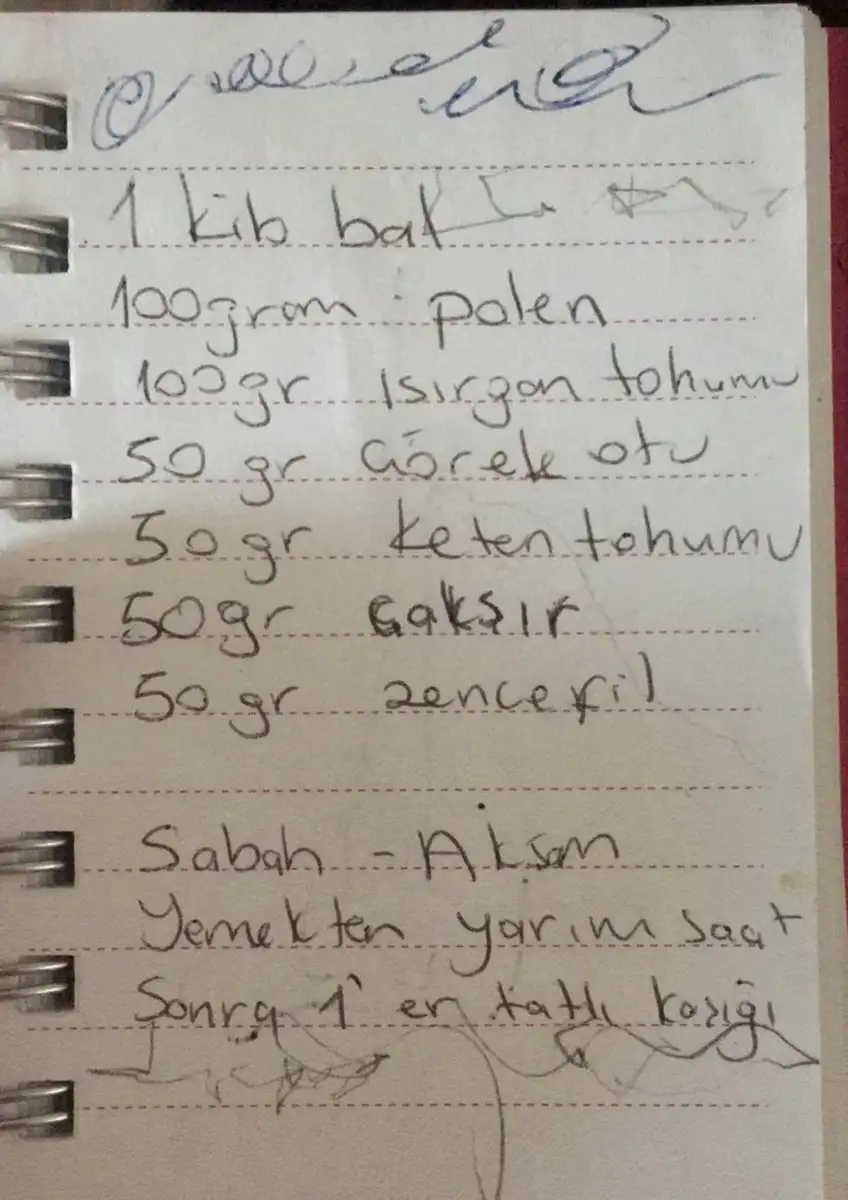 1 kilo bal
100gram polen
100gr ısırgan tohumu
50 gr Çörek otu
50 gr keten tohumu
50gr çakşır
50 gr zencefil
Sabah - Akşam
Yemekten yarım saat
Sonra 1' er tatlı kaşığı